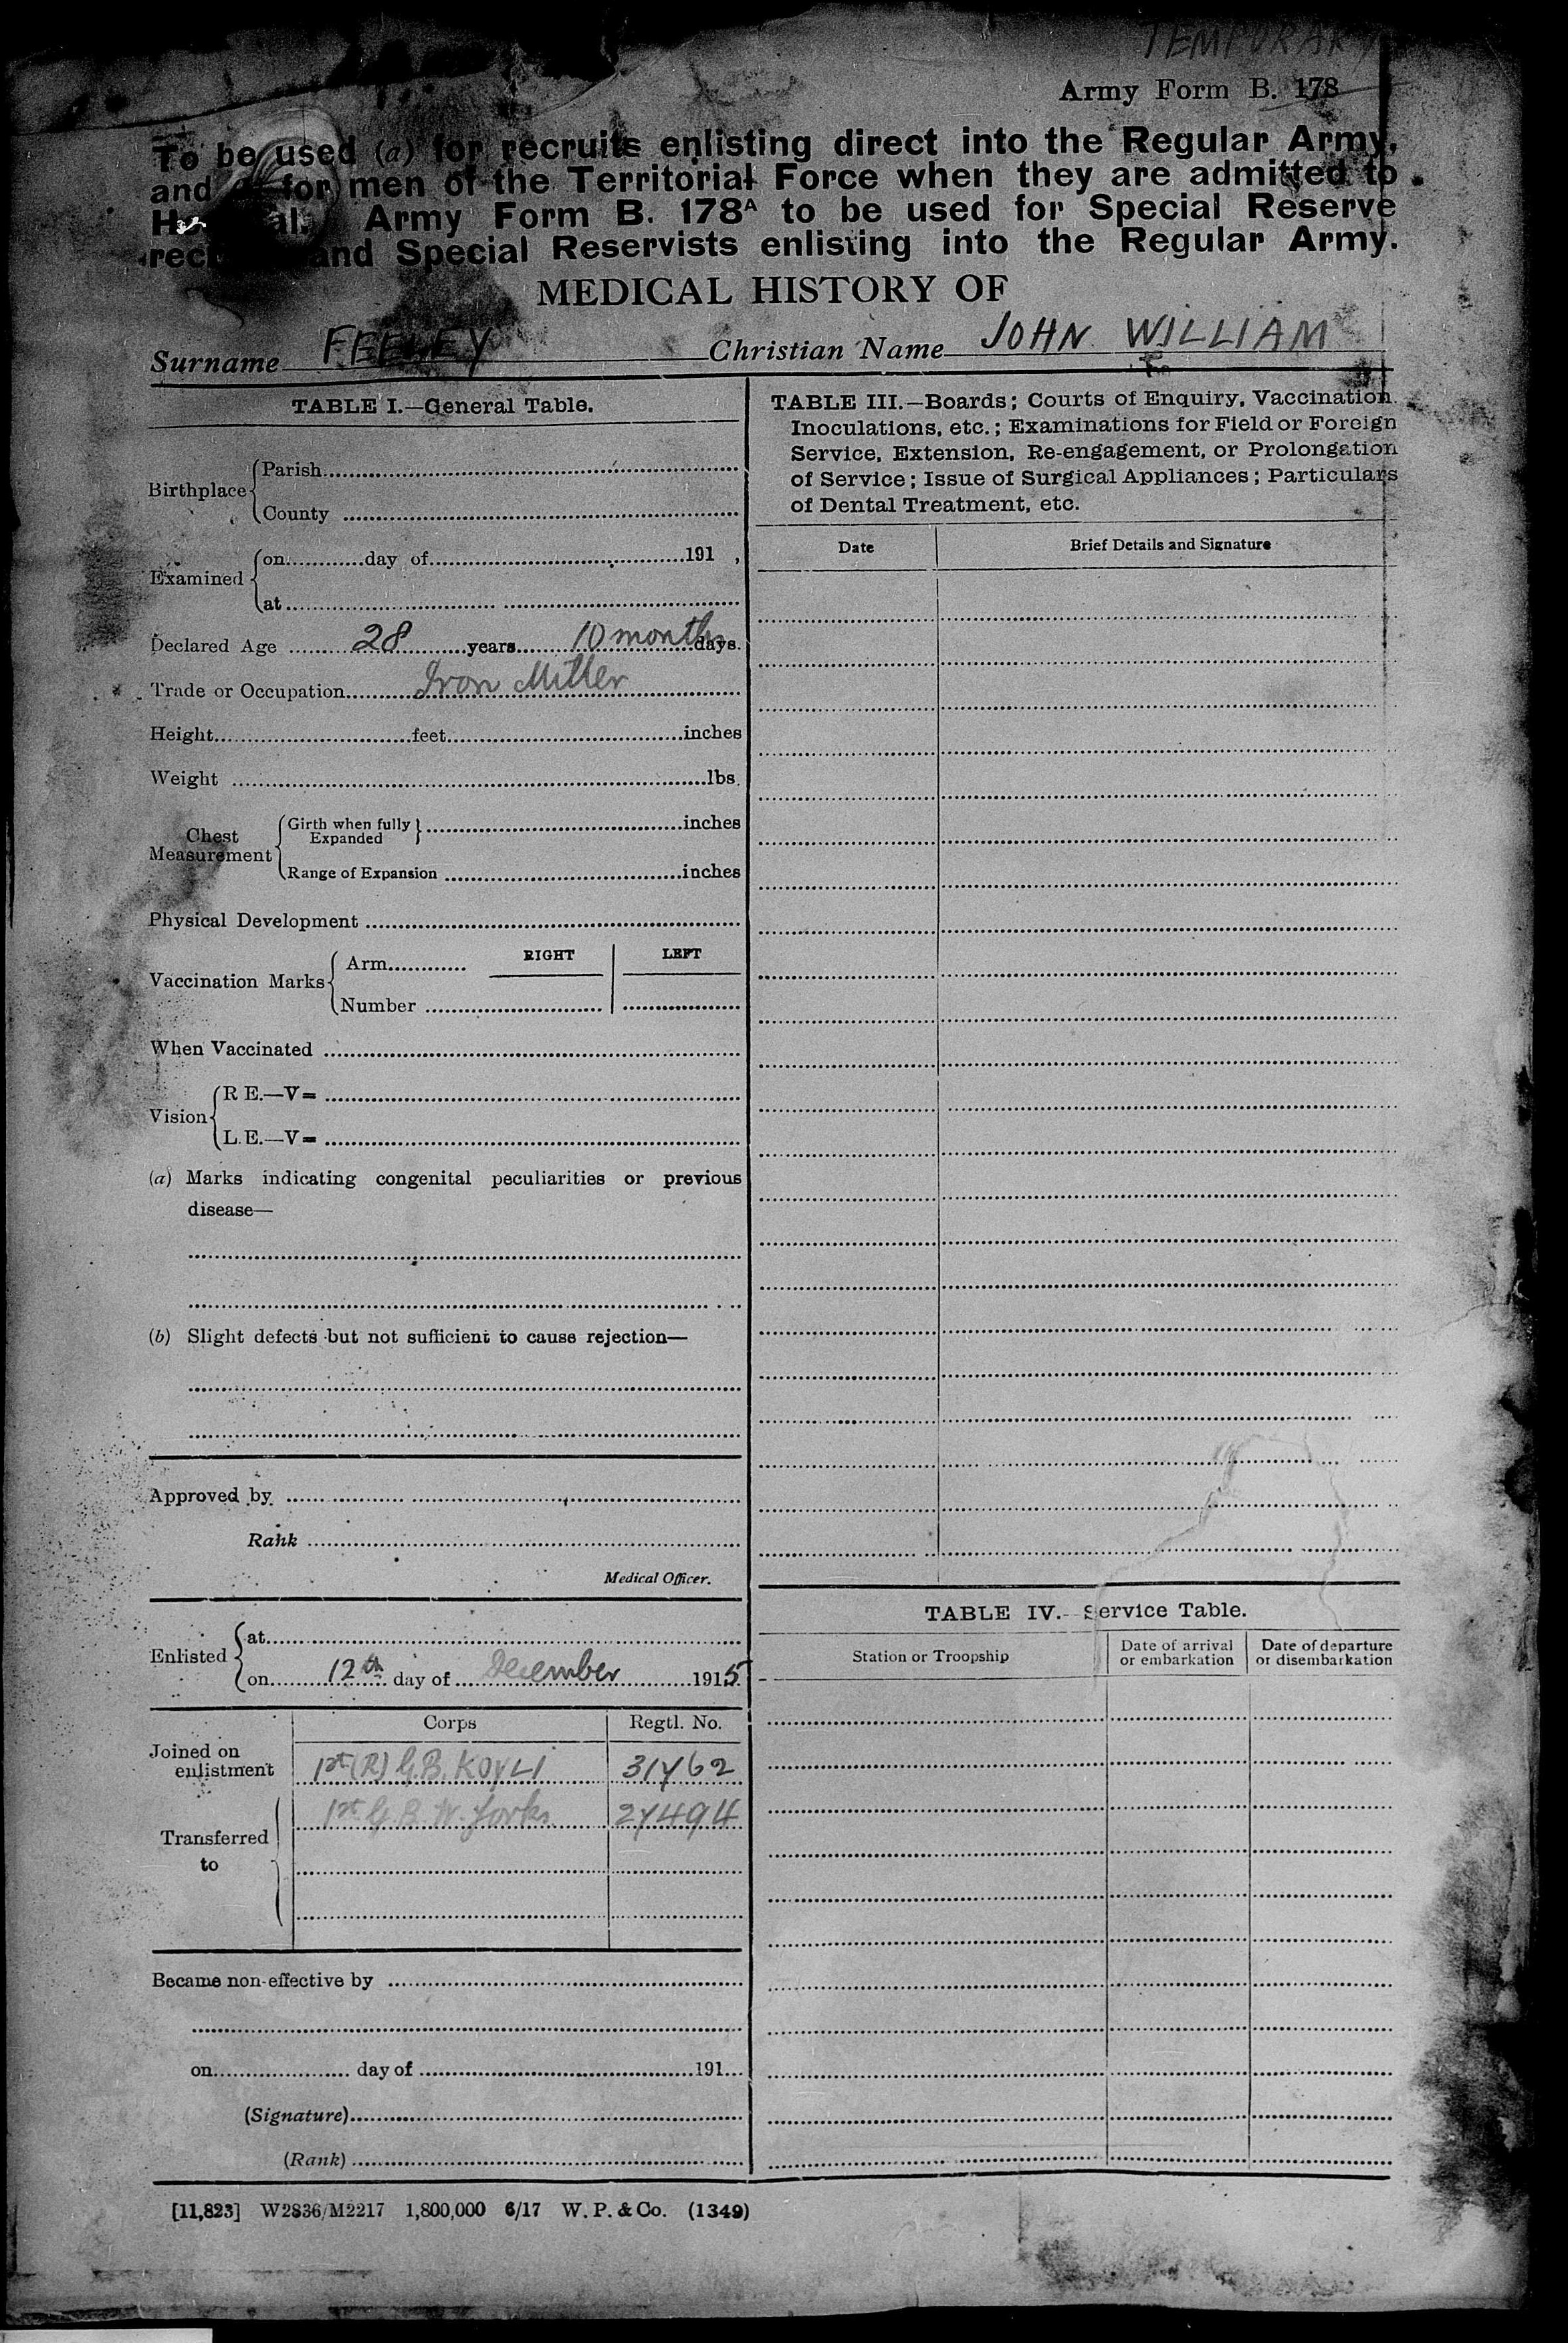 TEMPORARY
Army Form B. 178
To be used (a) for recruits enlisting direct into the Regular Army,
and for men of the Territorial Force when they are admitted to
Army Form B. 178A to be used for Special Reserve
and Special Reservists enlisting into the Regular Army.
MEDICAL HISTORY OF
Surname FEELEY Christian Name JOHN WILLIAM
TABLE I.—General Table.
Birthplace
Parish
County
Examined
on day of 191 ,
at
Declared Age 28 years 10 months days.
Trade or Occupation Iron Miller
Height feet inches
Weight lbs.
Chest Measurement
Girth when fully Expanded inches
Range of Expansion inches
Physical Development
Vaccination Marks
Arm RIGHT LEFT
Number
When Vaccinated
Vision
R E.—V=
L.E.—V=
(a) Marks indicating congenital peculiarities or previous
disease—
(b) Slight defects but not sufficient to cause rejection—
Approved by
Rank
Medical Officer.
Enlisted
at
on 12th day of December 1915
Corps Regtl. No.
Joined on enlistment 1st (R) G.B. KOYLI 31762
Transferred to 1st G.B. W. Yorks 27494
Became non-effective by
on day of 191
(Signature)
(Rank)
TABLE III.—Boards; Courts of Enquiry, Vaccination.
Inoculations, etc.; Examinations for Field or Foreign
Service, Extension, Re-engagement, or Prolongation
of Service; Issue of Surgical Appliances; Particulars
of Dental Treatment, etc.
Date Brief Details and Signature
TABLE IV.—Service Table.
Station or Troopship
Date of arrival or embarkation
Date of departure or disembarkation
[11,823] W2836/M2217 1,800,000 6/17 W. P. & Co. (1349)